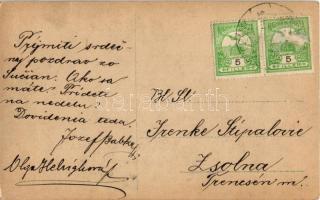 Prijmiti srdeč-
ný pozdrav zo
Sučian. Ako sa
máte? Prídete
na nedelu?
Dovidenia
Jozef Babka
Olga Helvighová
5
5
Bl. Sl.
Irenke Stipalovic
Zsolna
Trencsén m.